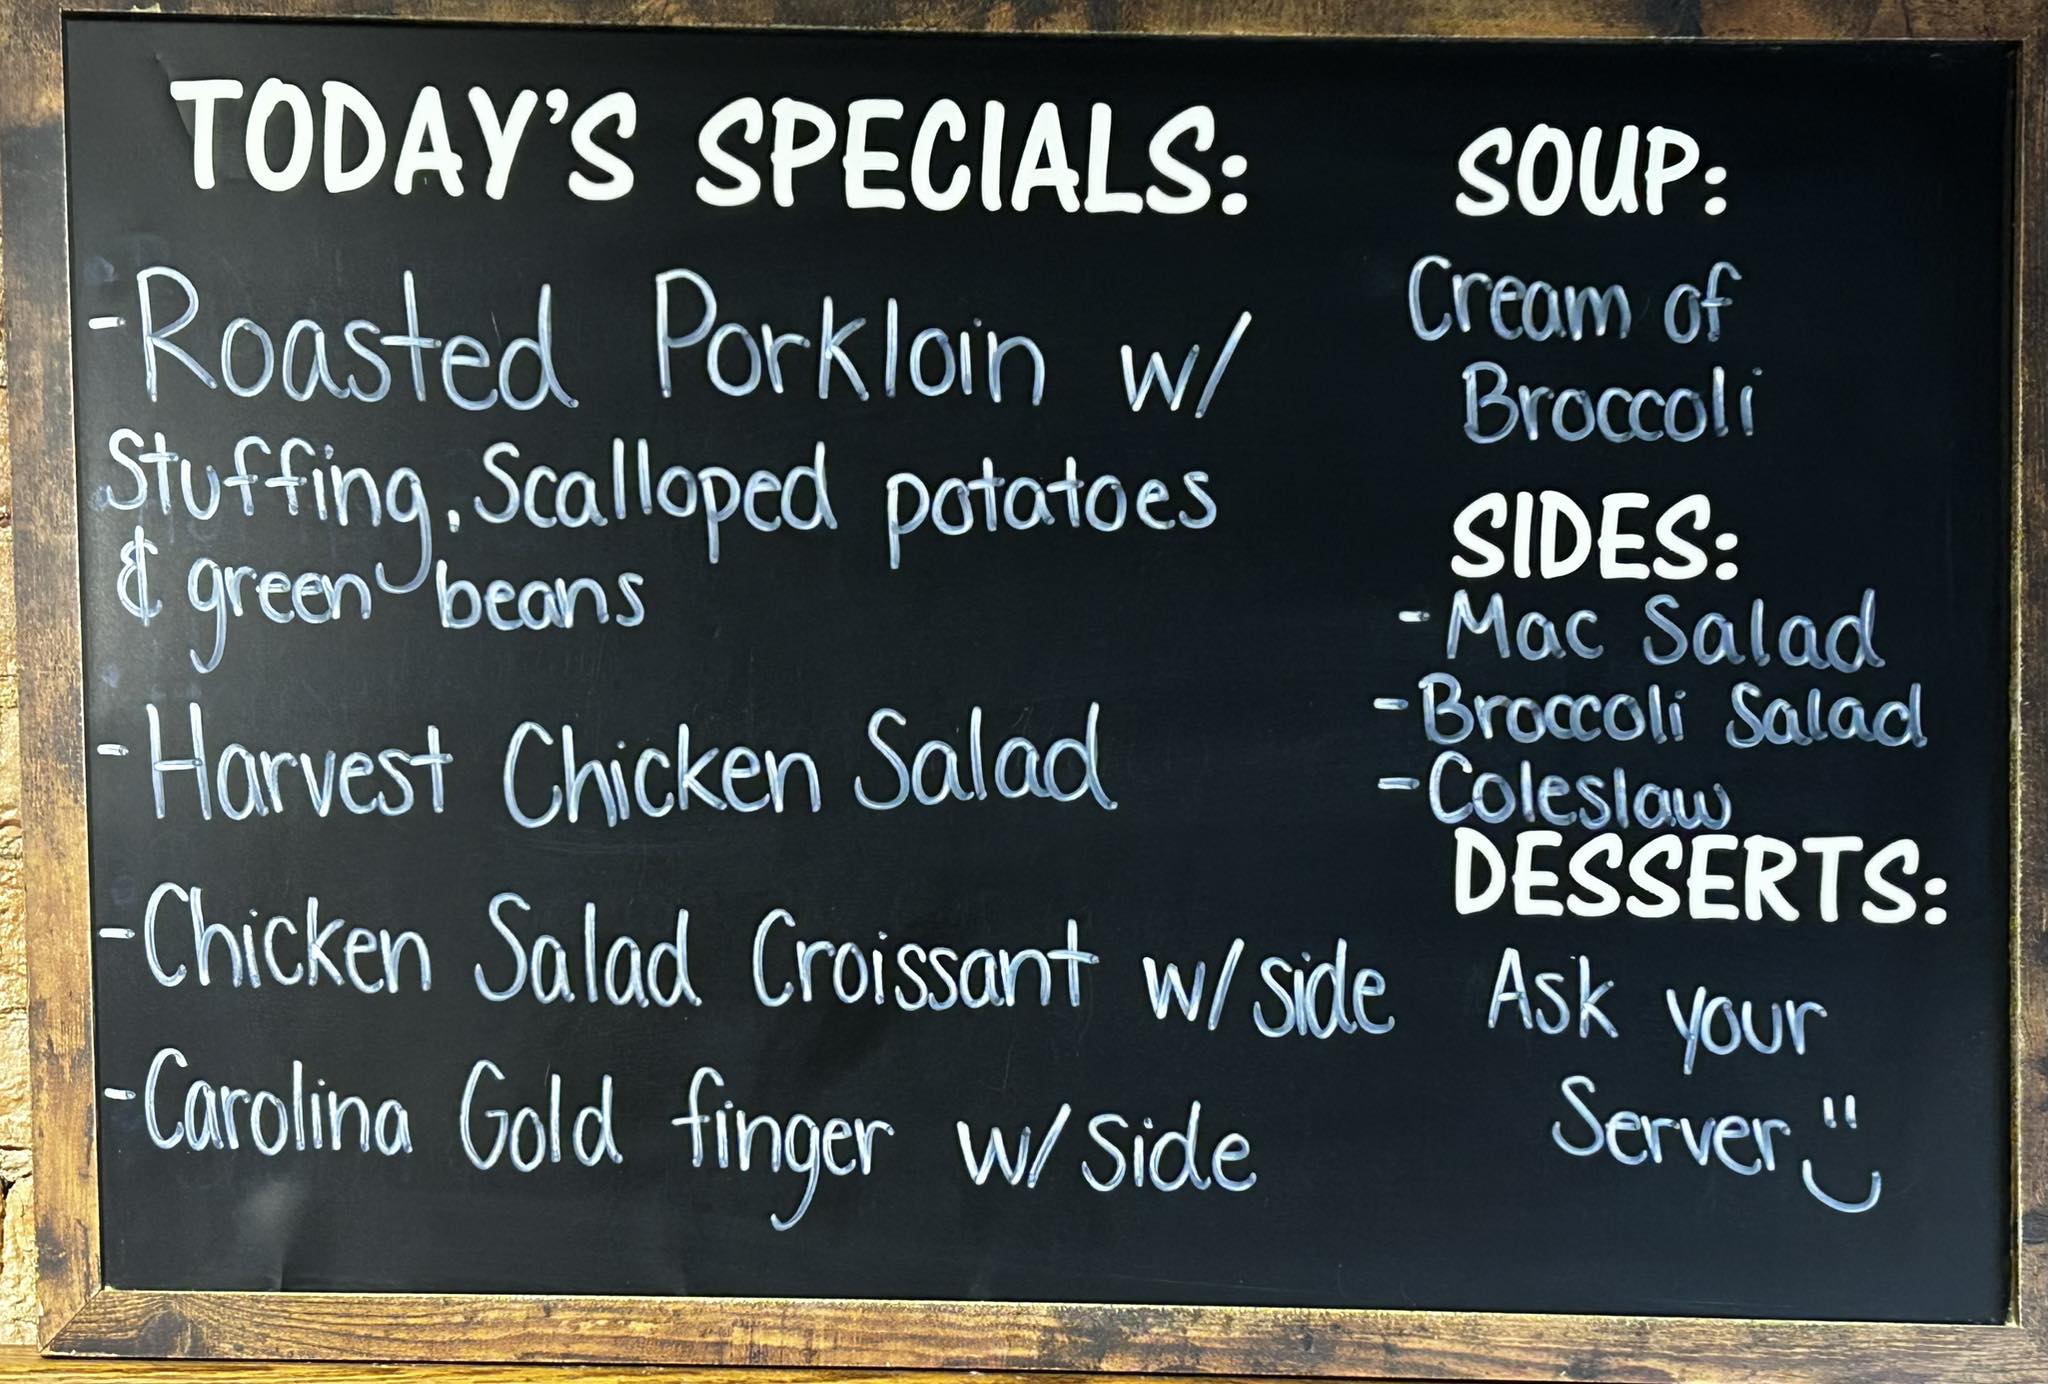 TODAY'S SPECIALS:
-Roasted Porkloin w/
Stuffing, Scalloped potatoes
& green beans
-Harvest Chicken Salad
-Chicken Salad Croissant w/side
-Carolina Gold finger w/side
SOUP:
Cream of
Broccoli
SIDES:
-Mac Salad
-Broccoli Salad
-Coleslaw
DESSERTS:
Ask your
Server